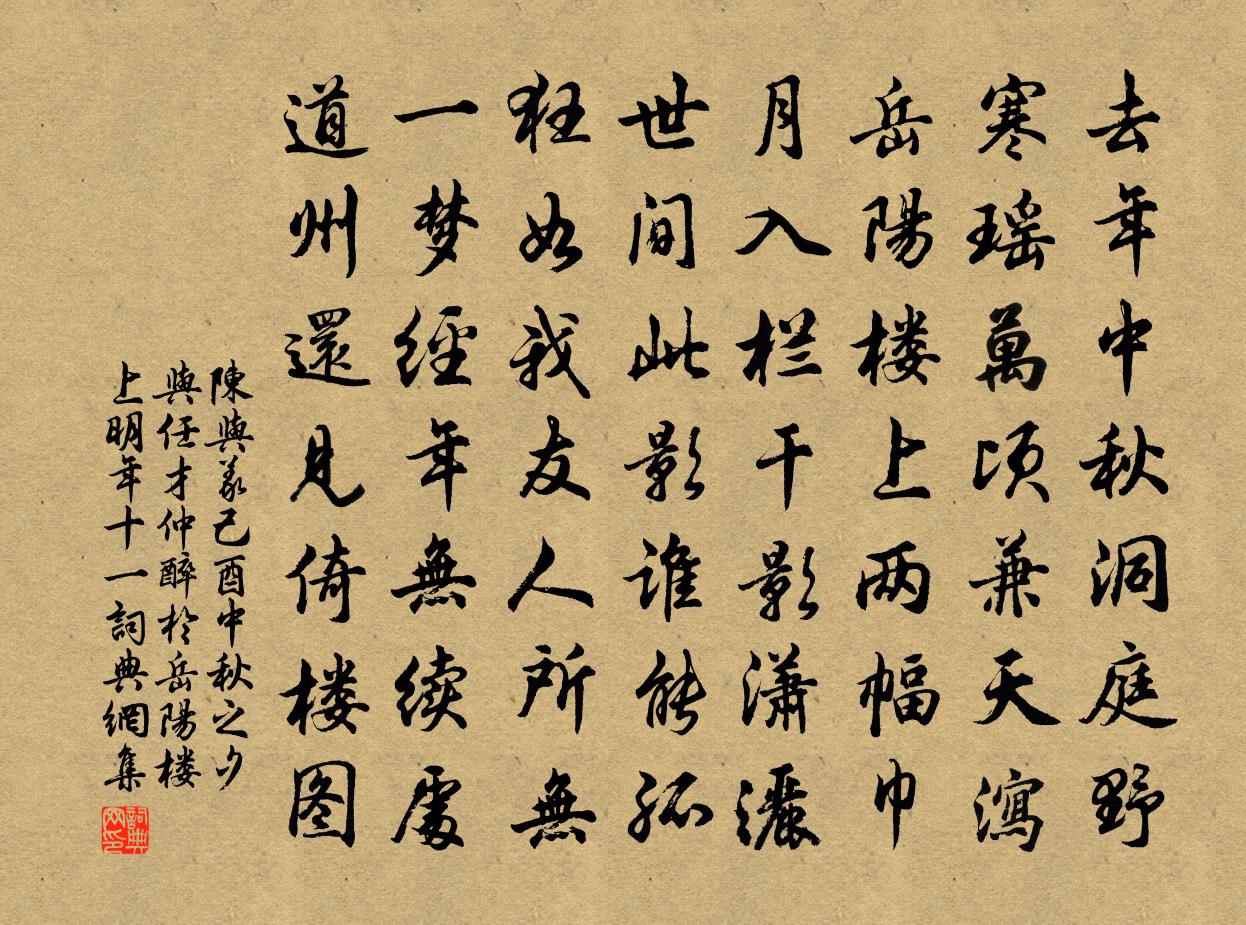 去年中秋洞庭野
寒瑶萬顷兼天瀉
岳陽楼上两幅巾
月入栏干影潇灑
世间此影谁能孤
狂如我友人所無
一梦经年無续處
道州還見倚楼图
陳與義己酉中秋之夕
與任才仲醉於岳陽楼
上明年十一詞典網集
詞典
网印